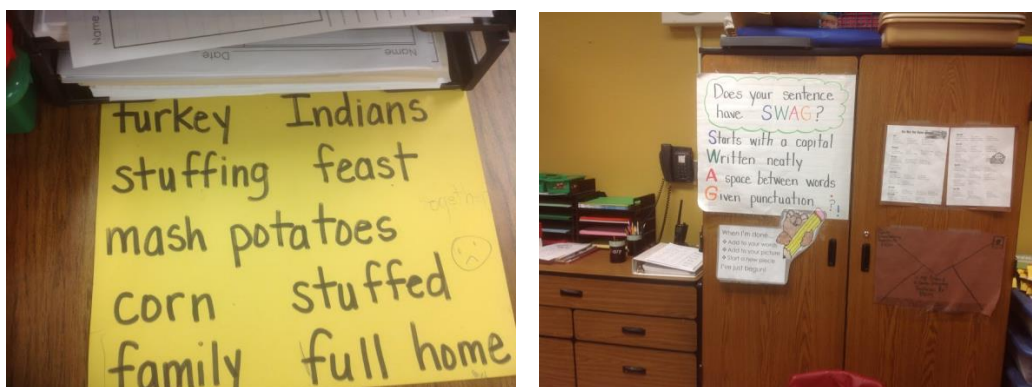 Name
Date
Name
turkey Indians
stuffing feast
mash potatoes
corn stuffed
family full home
Does your sentence
have SWAG?
Starts with a capital
Written neatly
A space between words
Given punctuation .?!
When I'm done...
Add to your words
Add to your picture
Start a new piece
I'm just begun!